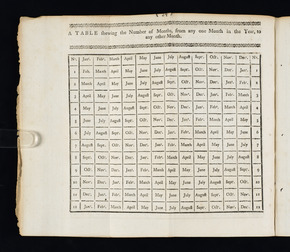 A TABLE shewing the Number of Months, from any one Month in the Year, to
any other Month.
N°. Jan'. Feb'. March April May June July August Sept'. Oct'. Nov'. Dec'. N°.
1 Feb'. March April May June July August Sept'. Oct'. Nov'. Dec'. Jan'. 1
2 March April May June July August Sept'. Oct'. Nov'. Dec'. Jan'. Feb'. 2
3 April May June July August Sept'. Oct'. Nov'. Dec'. Jan'. Feb'. March 3
4 May June July August Sept'. Oct'. Nov'. Dec'. Jan'. Feb'. March April 4
5 June July August Sept'. Oct'. Nov'. Dec'. Jan'. Feb'. March April May 5
6 July August Sept'. Oct'. Nov'. Dec'. Jan'. Feb'. March April May June 6
7 August Sept'. Oct'. Nov'. Dec'. Jan'. Feb'. March April May June July 7
8 Sept'. Oct'. Nov'. Dec'. Jan'. Feb'. March April May June July August 8
9 Oct'. Nov'. Dec'. Jan'. Feb'. March April May June July August Sept'. 9
10 Nov'. Dec'. Jan'. Feb'. March April May June July August Sept'. Oct'. 10
11 Dec'. Jan'. Feb'. March April May June July August Sept'. Oct'. Nov'. 11
12 Jan'. Feb'. March April May June July August Sept'. Oct'. Nov'. Dec'. 12